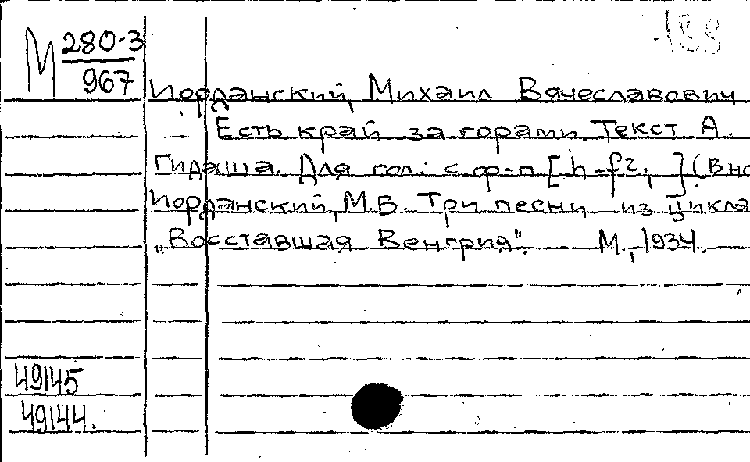 188
М 280-3
967
Иорданский, Михаил Вячеславович
— Есть край за горами. Текст А.
Гидаша. Для гол. с ф-п [h-fis²,] (В но
Иорданский, М.В. Три песни из цикла
„Восставшая Венгрия". М., 1934.
49145
49144.